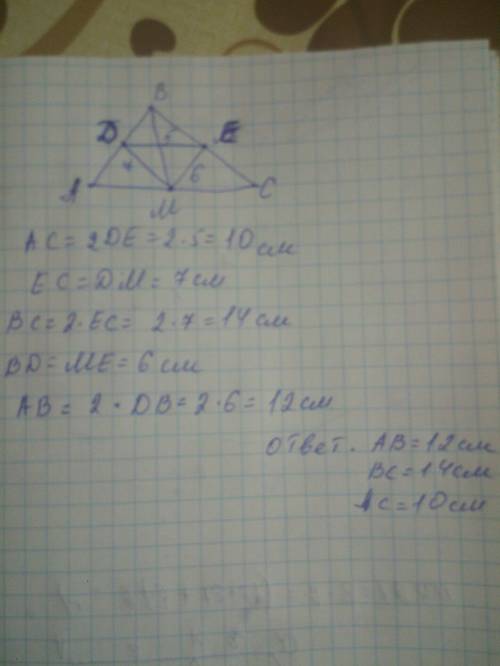 B
D 5 E
7 6
A M C
AC = 2DE = 2·5 = 10 см
EC = DM = 7 см
BC = 2·EC = 2·7 = 14 см
BD = ME = 6 см
AB = 2·DB = 2·6 = 12 см
Ответ. AB = 12 см
BC = 14 см
AC = 10 см